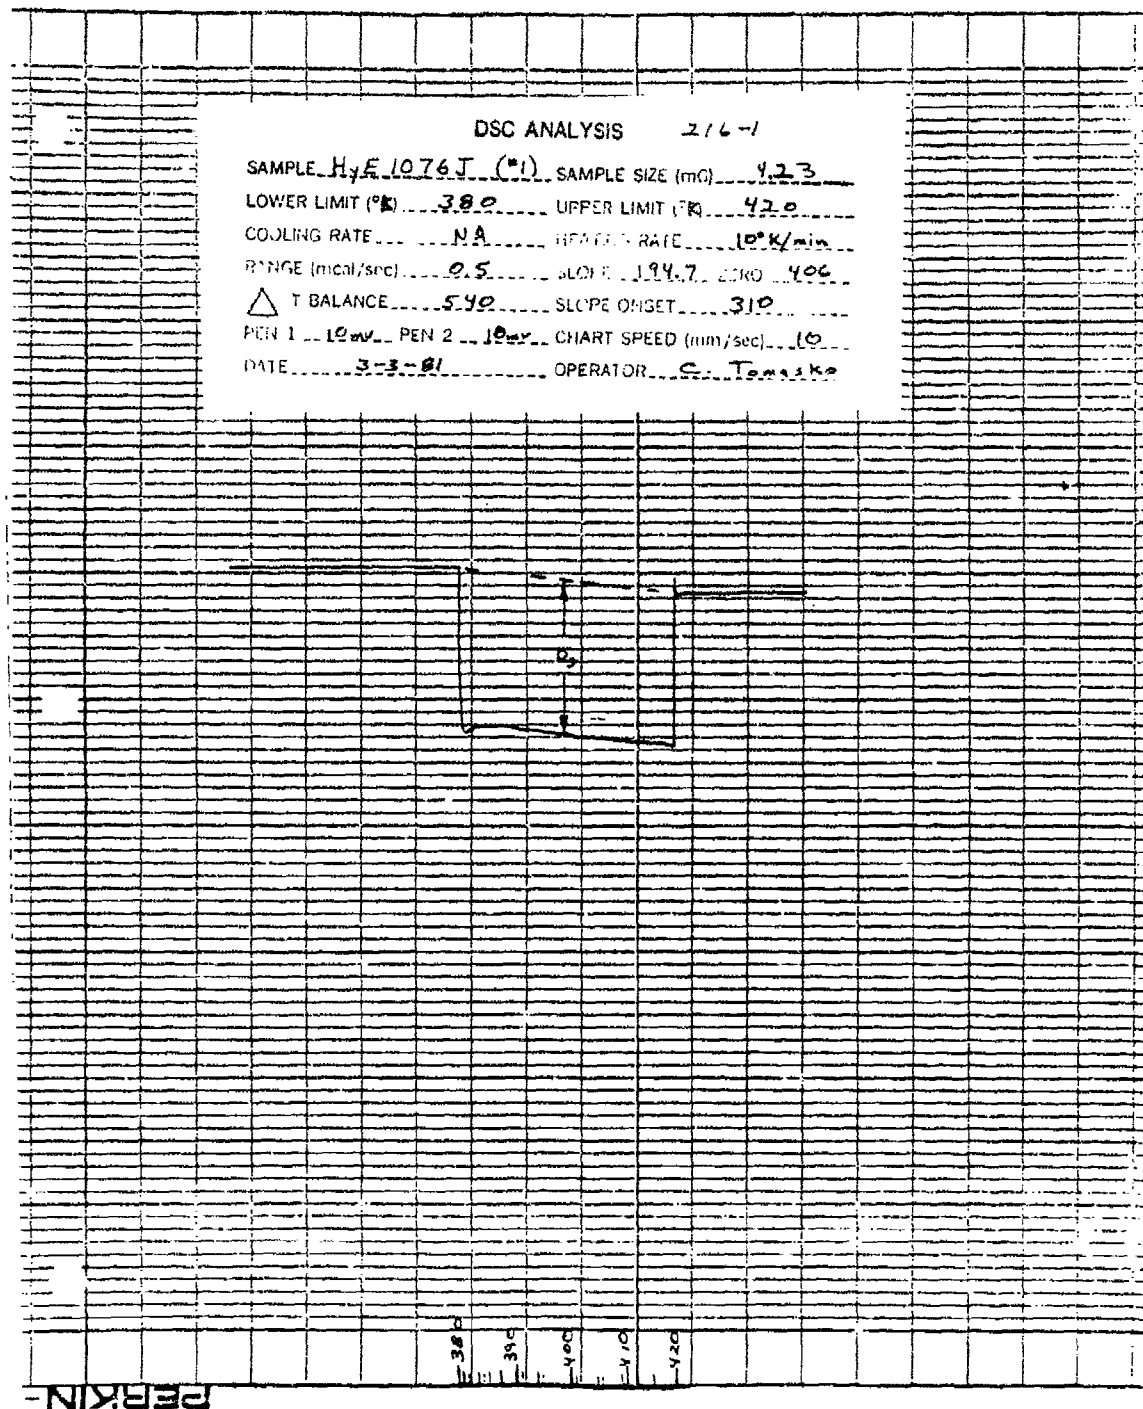 DSC ANALYSIS 216-1
SAMPLE HyE 1076J (#1) SAMPLE SIZE (mG) 4.23
LOWER LIMIT (°K) 380 UPPER LIMIT (°K) 420
COOLING RATE NA HEATING RATE 10°K/min
RANGE (mcal/sec) 0.5 SLOPE 194.7 ZERO 406
△ T BALANCE 540 SLOPE ONSET 310
PEN 1 10mv PEN 2 10mv CHART SPEED (mm/sec) 10
DATE 3-3-81 OPERATOR C. Tomasko
380 390 400 410 420
PERKIN-